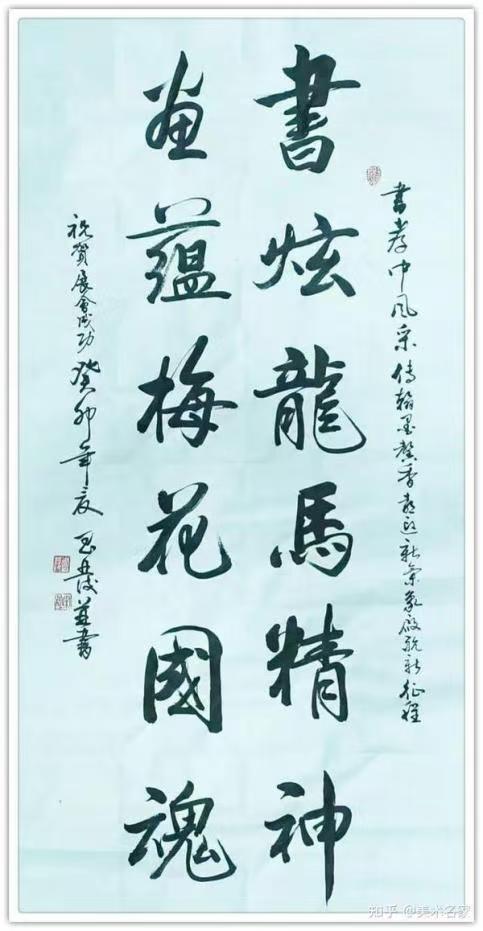 書中風采傳翰墨馨香迎新象啟航新征程
書炫龍馬精神
畫蘊梅花國魂
祝賀展會成功 癸卯年夏 書
知乎 @美术名家